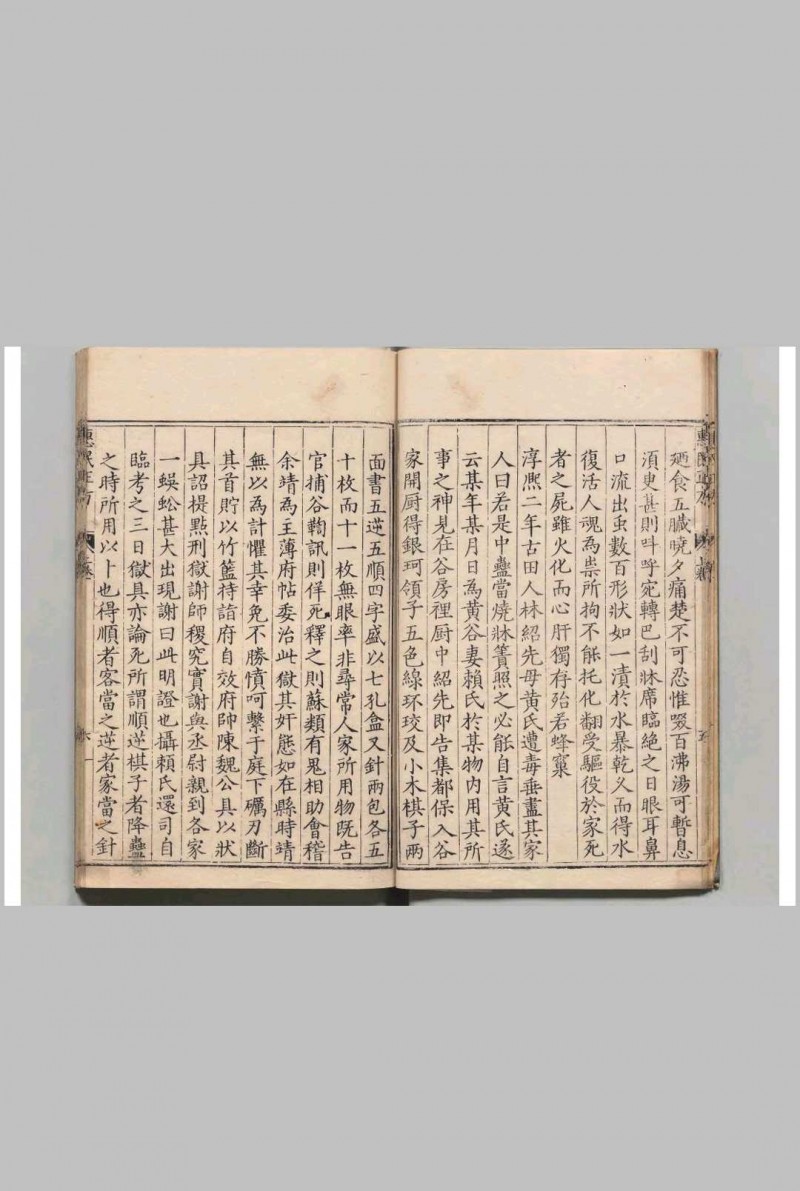 𢌞食五臟曉夕痛楚不可忍惟啜百沸湯可暫息
湏臾甚則呌呼宛轉巴刮牀席臨絶之日眼耳鼻
口流出虫數百形狀如一漬於水暴乾乆而得水
復活人魂為祟所拘不能托化翻受驅役於家死
者之屍雖火化而心肝獨存殆若蜂窠
淳熈二年古田人林紹先母黄氏遭毒垂盡其家
人曰若是中蠱當燒牀簀照之必能自言黄氏遂
云某年某月日為黄谷妻賴氏於某物内用其所
事之神見在谷房裡厨中紹先即告集都保入谷
家開厨得銀珂領子五色線环珓及小木棋子兩
面書五逆五順四字盛以七孔盒又針兩包各五
十枚而十一枚無眼率非尋常人家所用物既告
官捕谷鞫訊則佯死釋之則蘇類有鬼相助會稽
余靖為主薄府帖委治此獄其奸態如在縣時靖
無以為計懼其幸免不勝憤呵繫于庭下礪刃斷
其首貯以竹籃持詣府自效府帥陳魏公具以狀
具詔提點刑獄謝師稷究實謝與丞尉親到各家
一蜈蚣甚大出現謝曰此明證也攝賴氏還司自
臨考之三日獄具亦論死所謂順逆棋子者降蠱
之時所用以卜也得順者客當之逆者家當之針